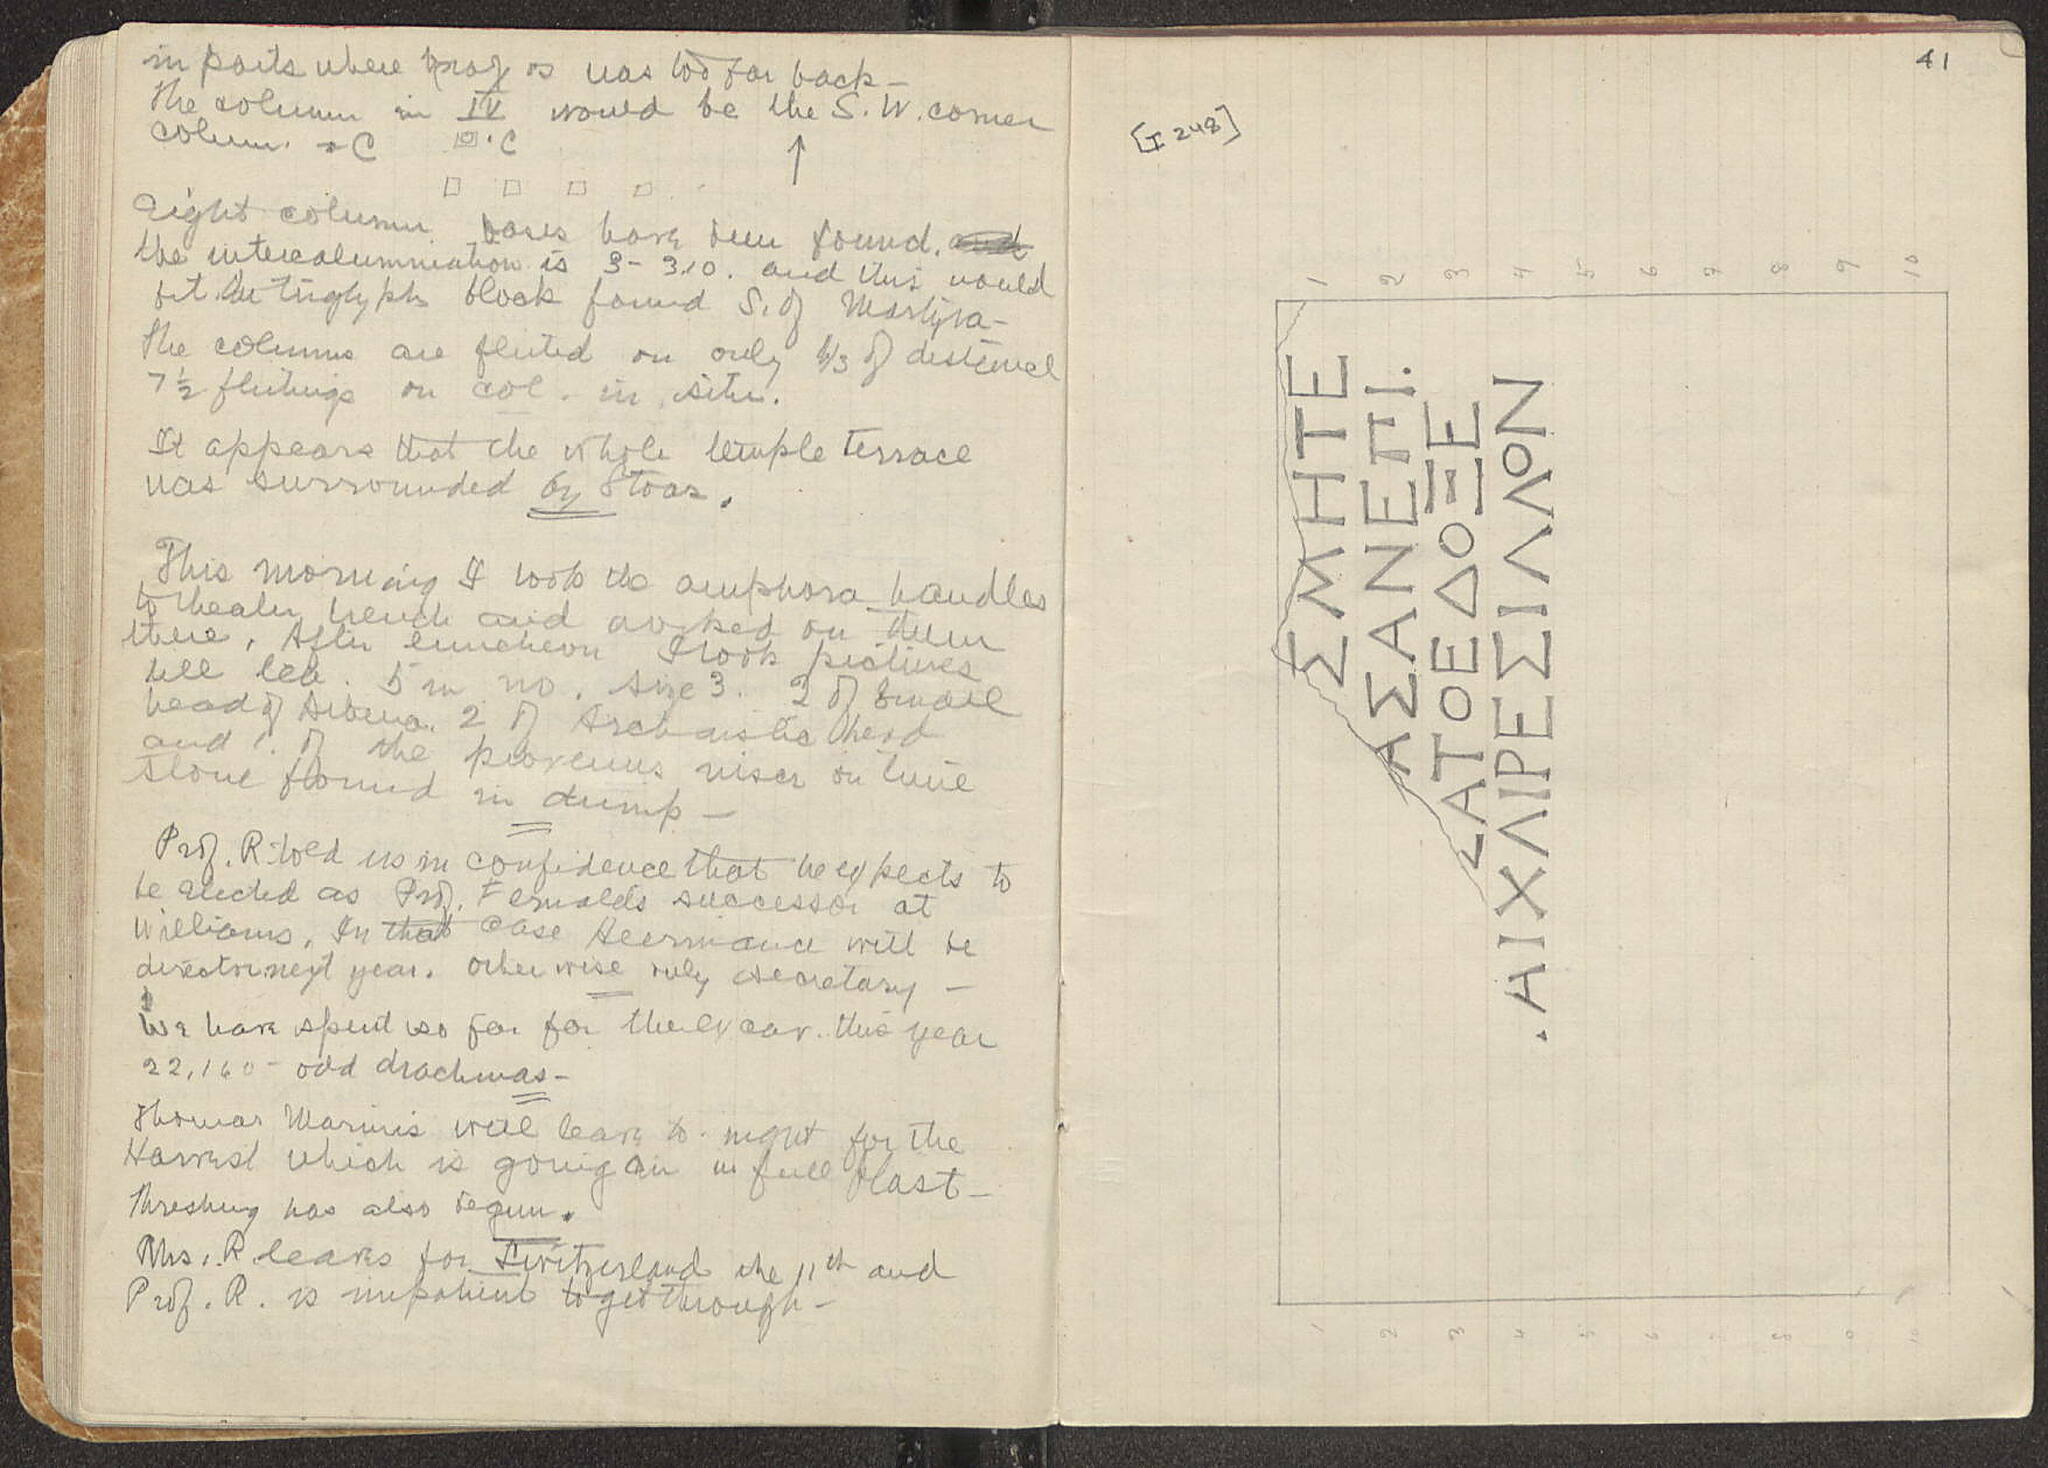 in parts where was too far back –
The column in IV would be the S.W. corner
column. C C
Eight column bases have been found.
the intercolumniation is 3 – 3.10. and this would
fit the triglyph block found S. of
The columns are fluted on only of
7 1/2 flutings on col. in situ.
It appears that the whole temple terrace
was surrounded by Stoas.
This morning I took the amphora handles
to theater trench and worked on them
there. After luncheon I took pictures
till 5 in no. size 3. 2 of small
head of 2 of Archaistic head
and 1. of the riser on lime
stone found in dump –
Prof. R. told us in confidence that he expects to
be elected as Prof. Fernald's successor at
Williams. In that case Heermance will be
director next year. Otherwise only secretary –
We have spent so far for the excav. this year
22,160 – odd drachmas –
Thomas Marinis will leave to-night for the
Harvest which is going on in full blast –
Threshing has also begun.
Mrs. R. leaves for Switzerland the 11th and
Prof. R. is impatient to get through –
41
[I 248]
1 2 3 4 5 6 7 8 9 10
ΣΜΗΤΕ
ΑΣΑΝΕΠΙ.
ΣΑΤΟΕΔΟΞΕ
.ΑΙΧΛΙΡΕΣΙΛΛΟΝ
1 2 3 4 5 6 7 8 9 10